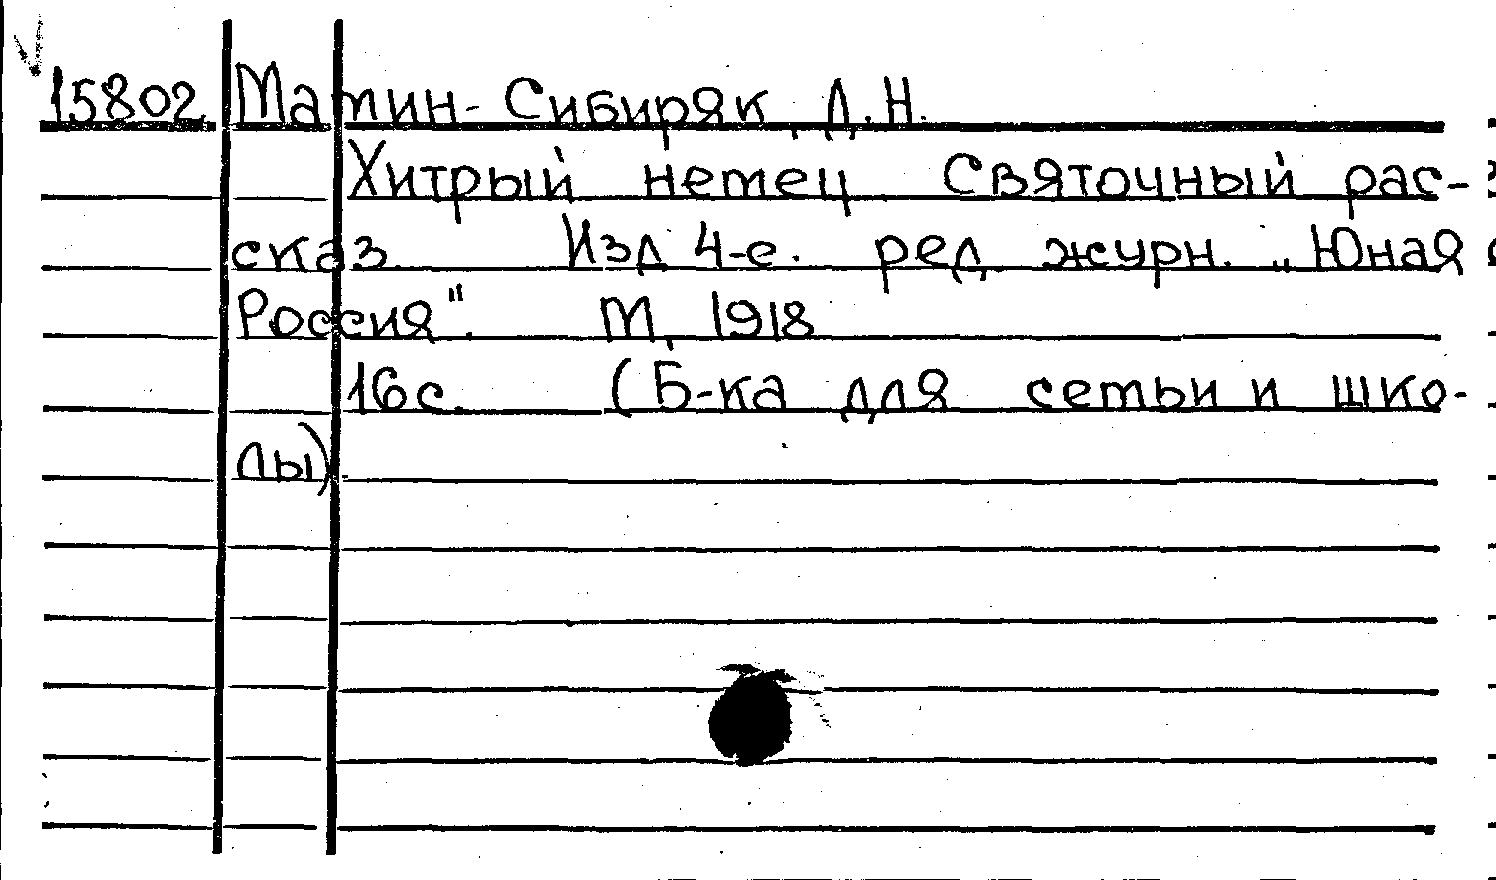 15802 Матин-Сибиряк, Д.Н.
Хитрый немец Святочный рас-
сказ. Изд 4-е. ред. журн. „Юная
Россия". М, 1918
16с. (Б-ка для сетьи и шко-
лы).